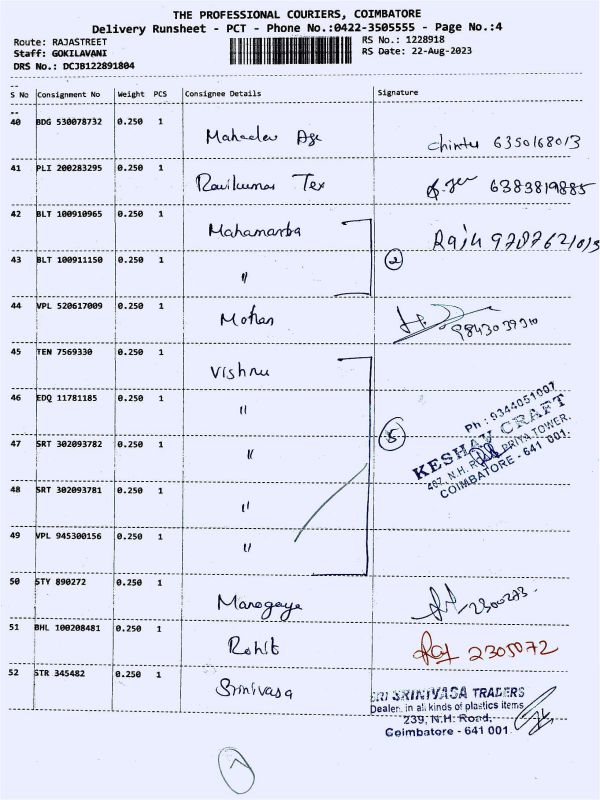 THE PROFESSIONAL COURIERS, COIMBATORE
Delivery Runsheet - PCT - Phone No.:0422-3505555 - Page No.:4
Route: RAJASTREET
Staff: GOKILAVANI
DRS No.: DCJB122891804
RS No.: 1228918
RS Date: 22-Aug-2023
S No Consignment No Weight PCS Consignee Details Signature
40 BDG 530078732 0.250 1 Mahadev Age chintu 6350168013
41 PLI 200283295 0.250 1 Ravikumar Tex 6383819885
42 BLT 100910965 0.250 1 Mahamantra Raju
43 BLT 100911150 0.250 1 〃 2
44 VPL 520617009 0.250 1 Mohan 9843039310
45 TEN 7569330 0.250 1 Vishnu
46 EDQ 11781185 0.250 1 〃
47 SRT 302093782 0.250 1 〃 5
Ph : 9344051007
KESHAV CRAFT
487, N.H. PRIYA TOWER.
COIMBATORE - 641 001.
48 SRT 302093781 0.250 1 〃
49 VPL 945300156 0.250 1 〃
50 STY 890272 0.250 1 2300273
51 BHL 100208481 0.250 1 Rohit Raj 2305072
52 STR 345482 0.250 1 Srinivasa
SRI SRINIVASA TRADERS
Dealer, in all kinds of plastics items
239, N.H. Road,
Coimbatore - 641 001